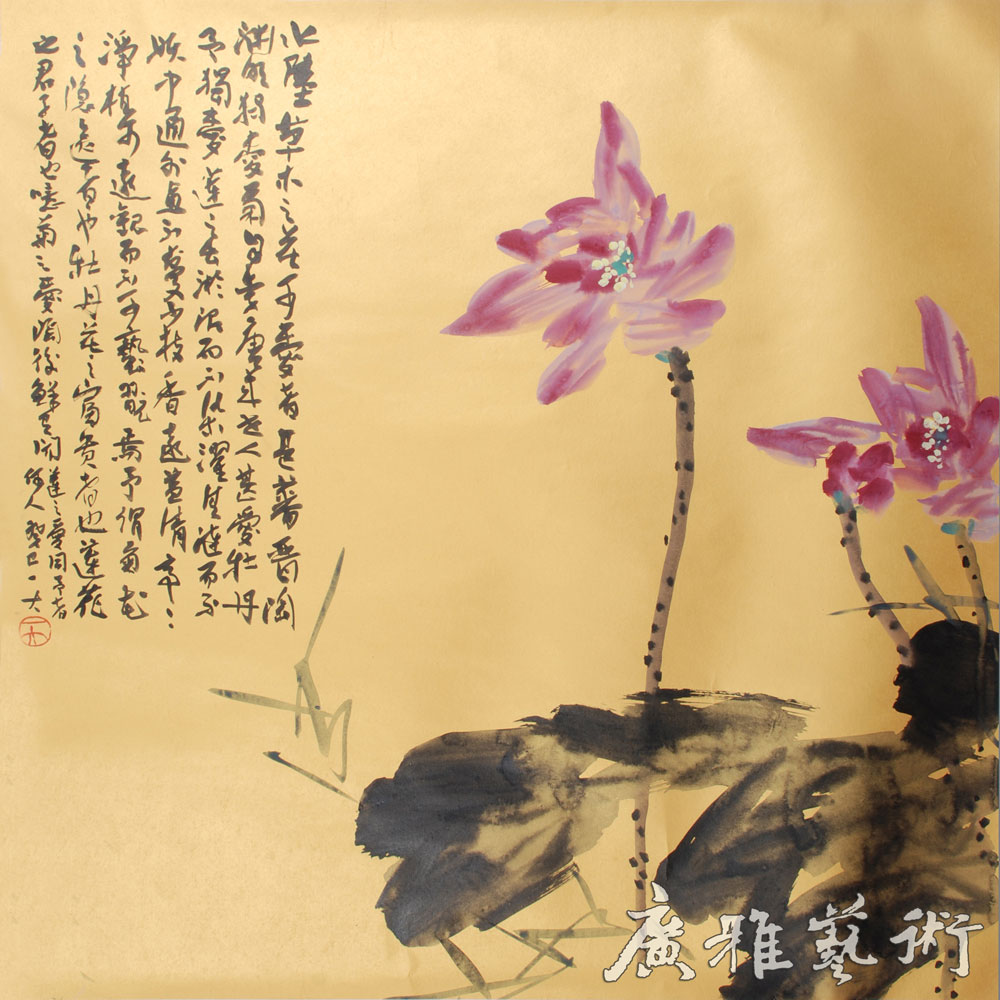 水陸草木之花可愛者甚蕃晉陶
淵明獨愛菊自李唐來世人甚愛牡丹
予獨愛蓮之出淤泥而不染濯清漣而不
妖中通外直不蔓不枝香遠益清亭〻
淨植可遠觀而不可褻翫焉予謂菊花
之隱逸者也牡丹花之富貴者也蓮花
之君子者也噫菊之愛陶後鮮有聞蓮之愛同予者
何人癸巳一大
一大
廣雅藝術